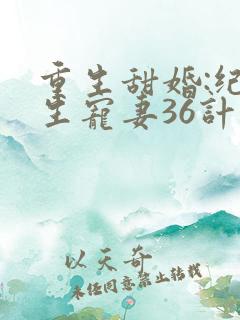 重生甜婚:纪
生宠妻36計
以天奇
未任同意禁止转载